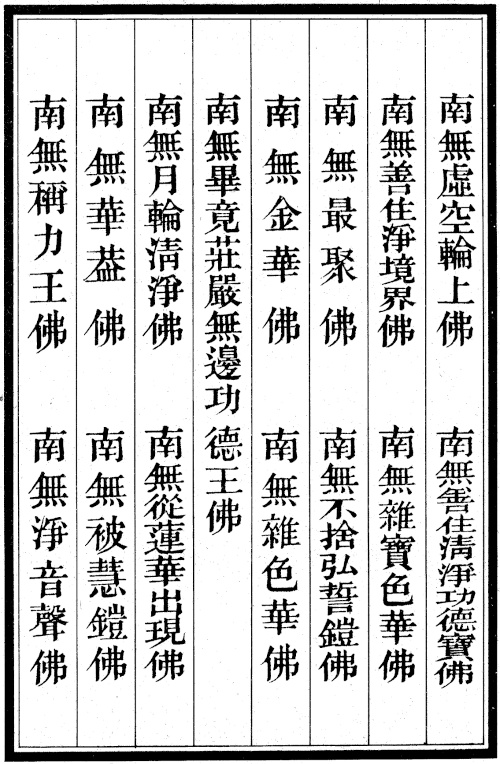 南無虛空輪上佛　南無善住清淨功德寶佛
南無善住淨境界佛　南無雜寶色華佛
南無最聚佛　南無不捨弘誓鎧佛
南無金華佛　南無雜色華佛
南無畢竟莊嚴無邊功德王佛
南無月輪清淨佛　南無從蓮華出現佛
南無華葢佛　南無被慧鎧佛
南無稱力王佛　南無淨音聲佛